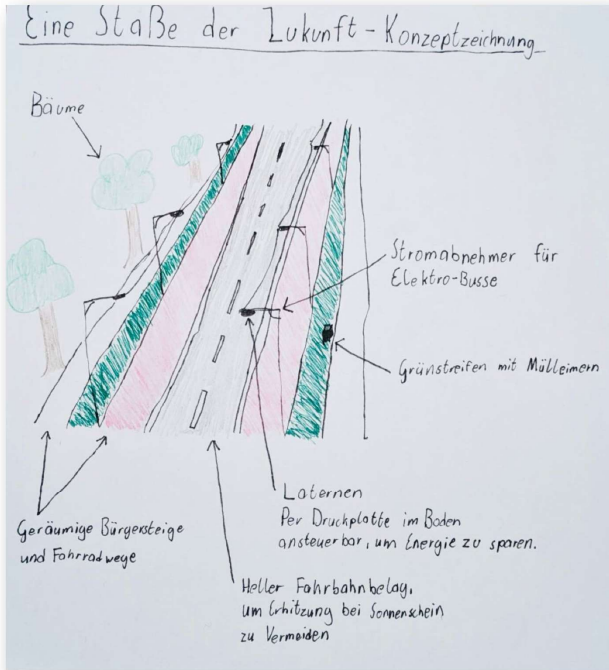 Eine Staße der Zukunft - Konzeptzeichnung
Bäume
Stromabnehmer für
Elektro-Busse
Grünstreifen mit Mülleimern
Laternen
Per Druckplatte im Boden
ansteuerbar, um Energie zu sparen.
Geräumige Bürgersteige
und Fahrradwege
Heller Fahrbahnbelag,
um Erhitzung bei Sonnenschein
zu Vermeiden